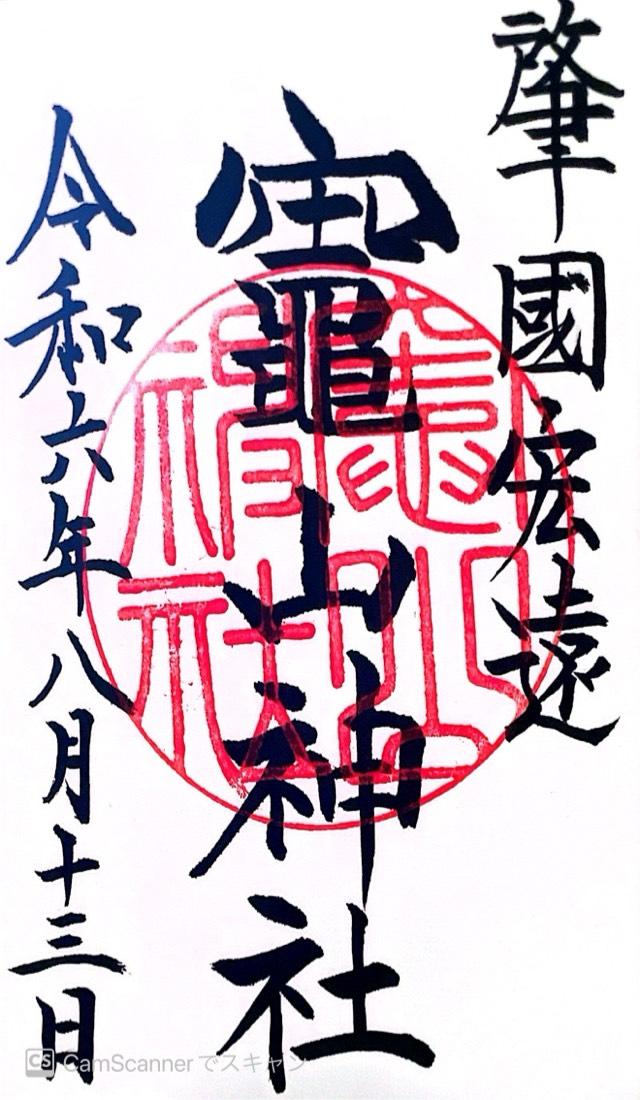 肇國宏遠
竈山神社
令和六年八月十三日
竈山神社
CS CamScannerでスキャン